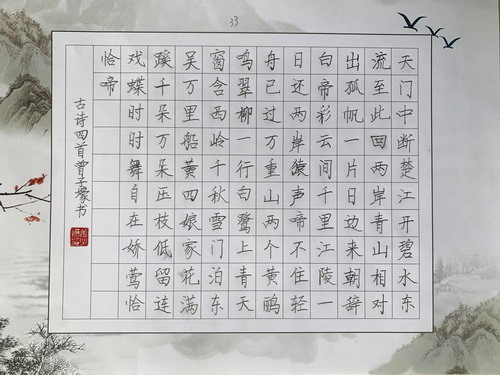 33
天门中断楚江开碧水东
流至此回两岸青山相对
出孤帆一片日边来朝辞
白帝彩云间千里江陵一
日还两岸猿声啼不住轻
舟已过万重山两个黄鹂
鸣翠柳一行白鹭上青天
窗含西岭千秋雪门泊东
吴万里船黄四娘家花满
蹊千朵万朵压枝低留连
戏蝶时时舞自在娇莺恰
恰啼
古诗四首曾子壕书